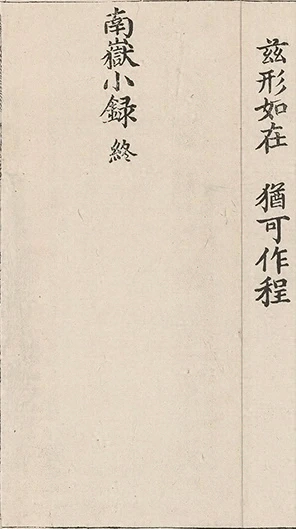 兹形如在　猶可作程
南嶽小録 終